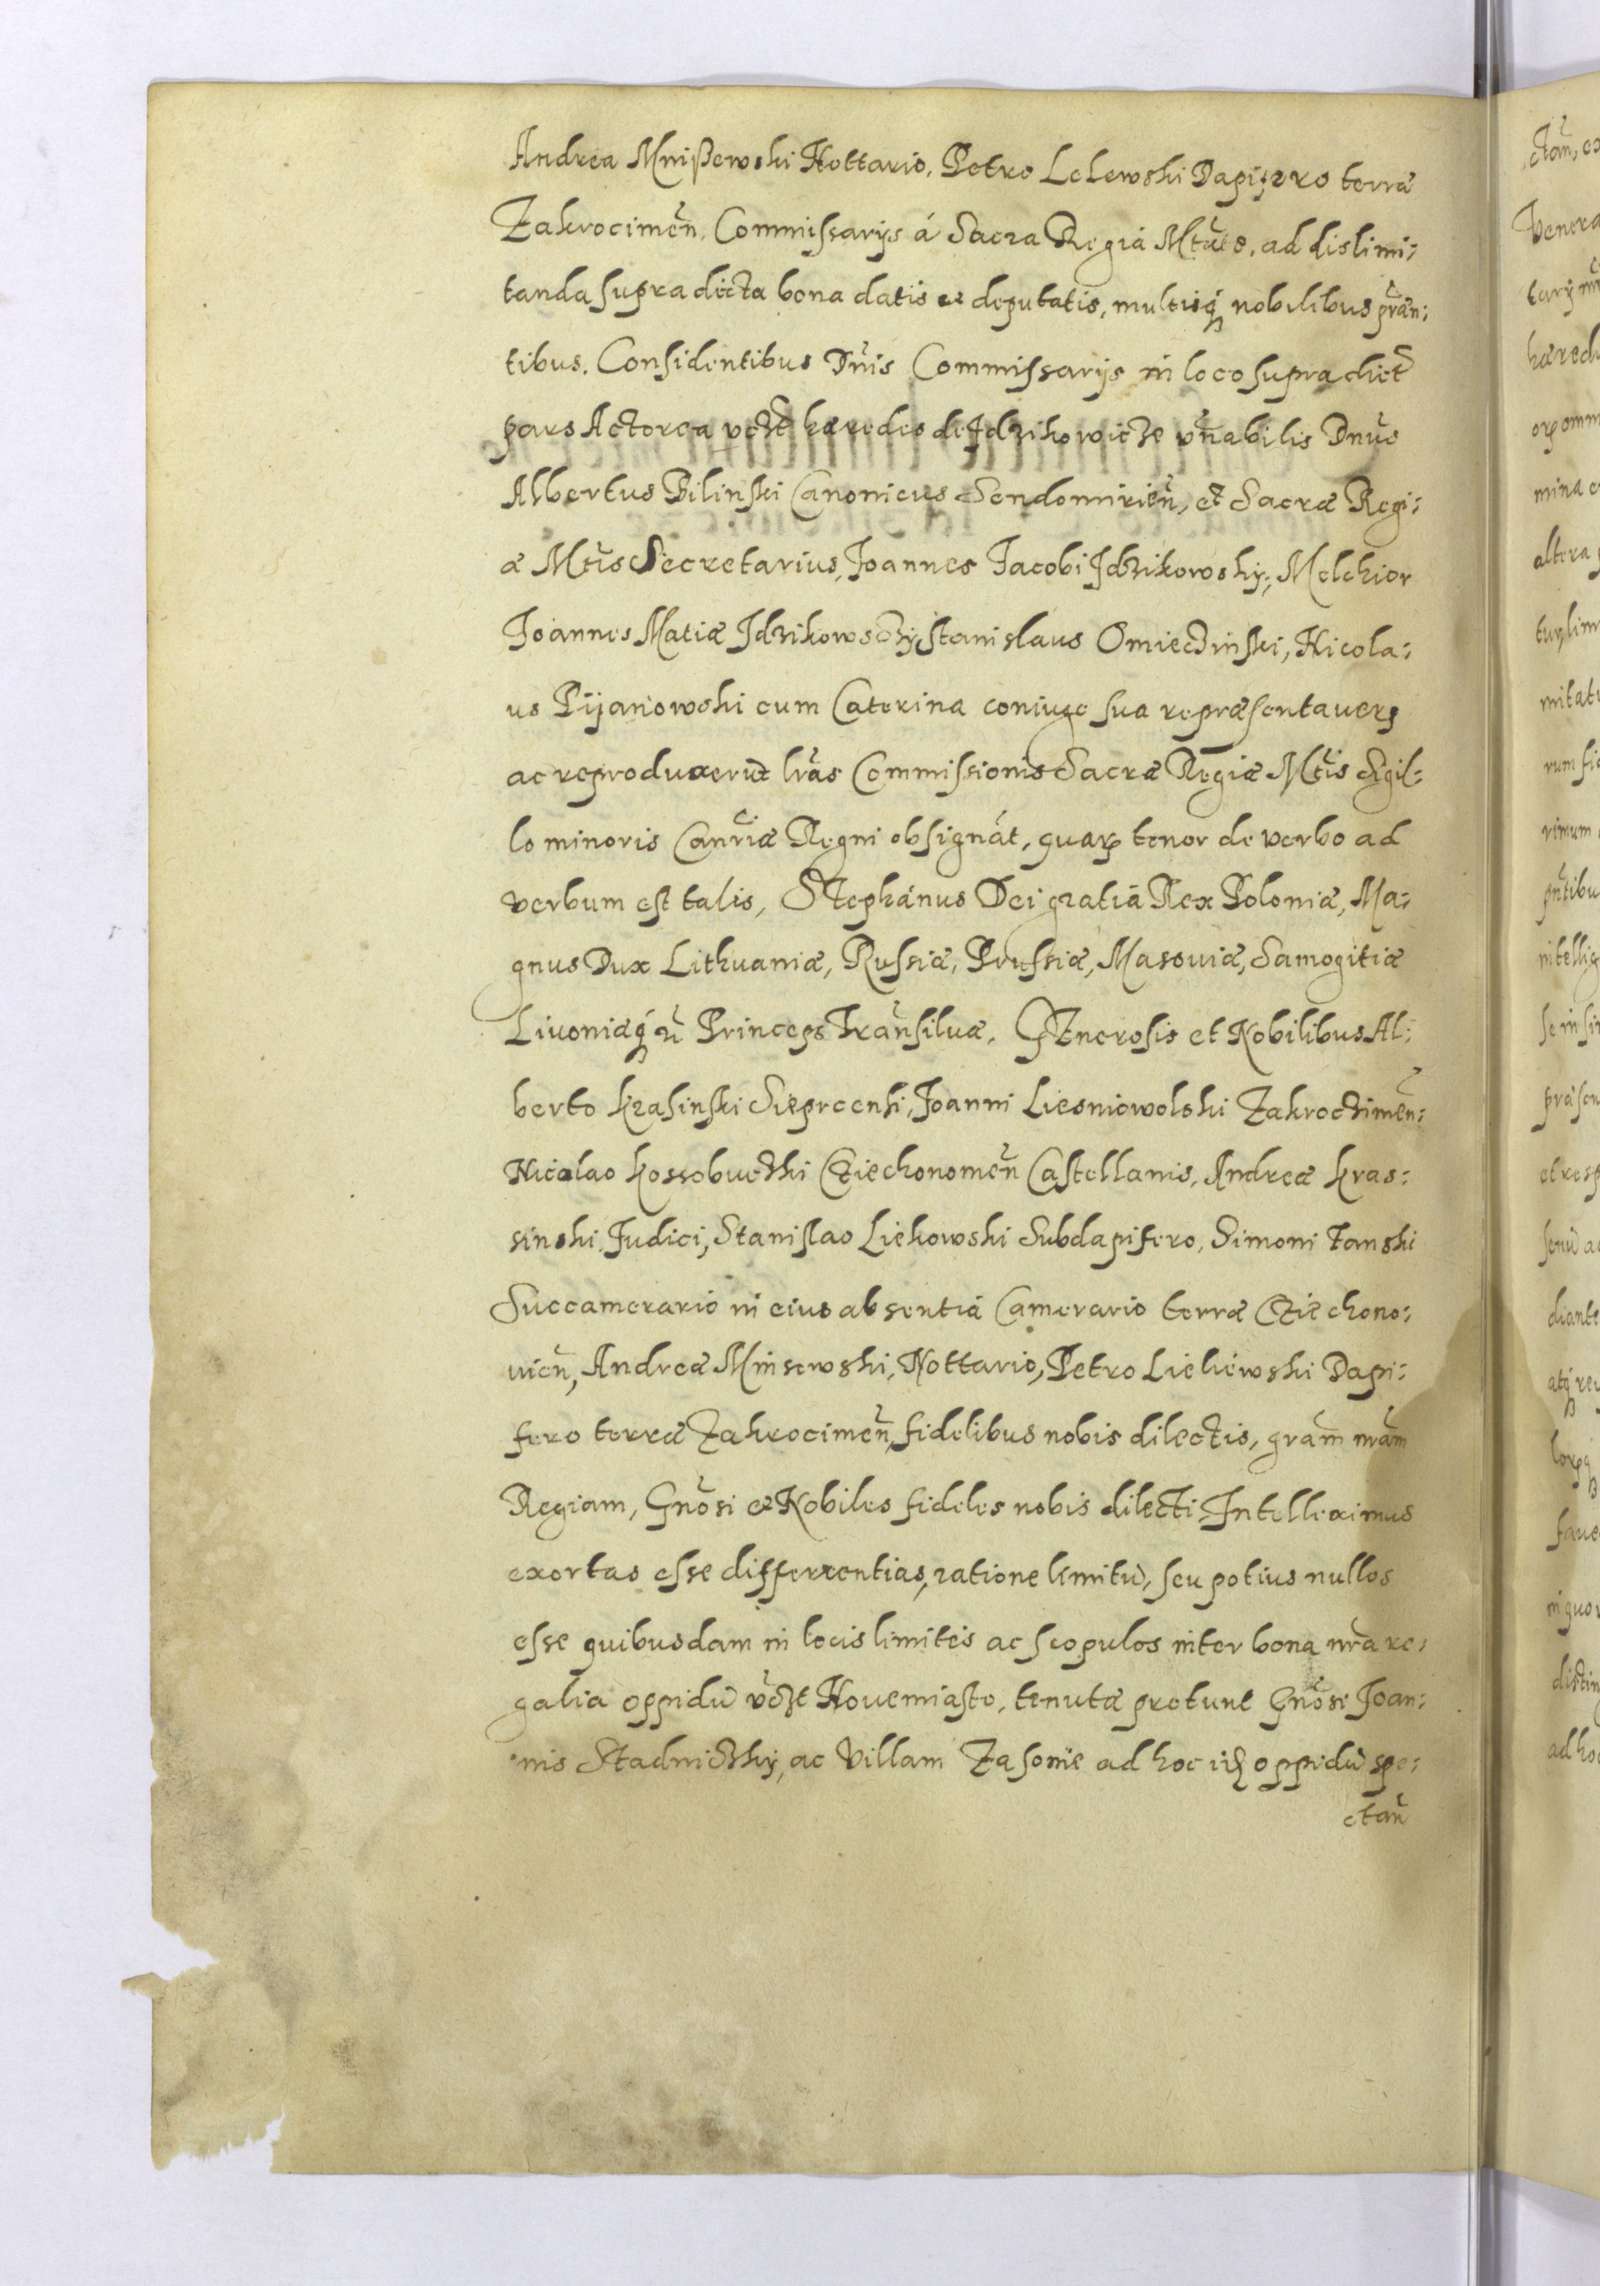 Andrea Mnißewski Nottario, Petro Lelewski Dapifero terræ
Zakrocimen̄, Commissarijs á Sacra Regiá Mt̄ute, ad dislimi:
tanda supra dicta bona datis et deputatis, multisq́ꝫ nobilibus p̄ræn:
tibus. Considentibus Dn̄is Commissarijs in loco supradict̄
pars Actorea vdzt̄ hæredes de Jdzikowicze vn̄abilis Dnūs
Albertus Bilinski Canonicus Sendomirien̄, et Sacræ Regi:
æ Mt̄is Secretarius, Joannes Jacobi Jdzikowsky, Melchior
Joannes Matiæ Jdzikowsczÿ Stanislaus Omieczinski, Nicola:
us Pijanowski cum Caterina coniuge sua repræsentaverꝭ
ac reproduxerūt lr̄as Commissionis Sacræ Regiæ Mt̄is Sigil:
lo minoris Can̄riæ Regni obsignát, quaꝝ tenor de verbo ad
verbum est talis, Stephánus Dei gratiá Rex Poloniæ, Ma:
gnus Dux Lithuaniæ, Russiæ, Prussiæ, Masouiæ, Samogitiæ
Liuoniæq́ꝫ Princeps Tran̄siluæ. GEnerosis et Nobilibus Al:
berto Krasinski Sieprcenski, Joanni Liesniowolski Zakroczimen̄:
Nicolao Kossobuczki Cziechonomen̄ Castellanis, Andreæ Kras:
sinski Judici, Stanislao Liekowski Subdapifero, Simoni Tanski
Succamerario in eius absentiá Camerario terræ Cziechono:
uien̄, Andreæ Mnisewski, Nottario, Petro Lieliewski Dapi:
fero terræ Zakrocimen̄, fidelibus nobis dilectis, gram̄ nram̄
Regiam, Gnōsi et Nobiles fideles nobis dilecti, Intelleximus
exortas esse differrentias, ratione limitū, seu potius nullos
esse quibusdam in locis limites ac scopulos inter bona nr̄a re:
galia oppidū v̄dzt Nouemiasto, tenutæ protunc Gnōse Joan:
nis Stadniczky, ac Villam Zasonie ad hoc oppidū spe:
ctan̄